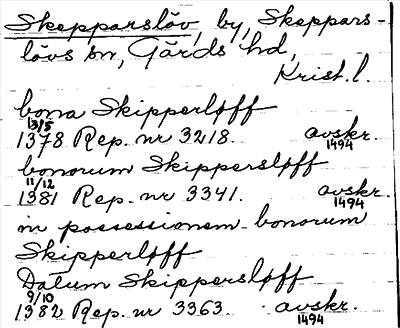 Skepparslöv, by, Skeppars-
lövs sn, Gärds hd,
Krist. l.
bona Skipperløff
13/5 1378 Rep. nr 3218. avskr. 1494
bonorum Skippersløff
11/12 1381 Rep. nr 3341. avskr. 1494
in possessionem bonorum
Skipperløff
Datum Skippersløff
9/10 1382 Rep. nr 3363. avskr. 1494